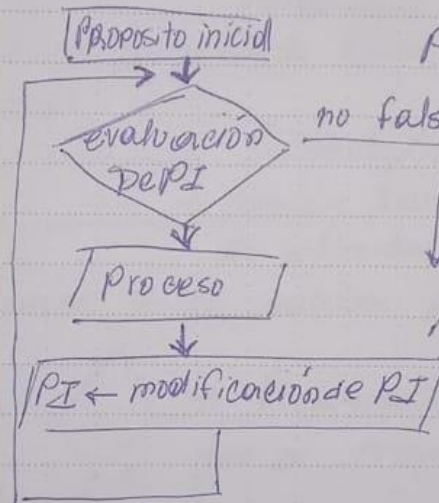 PROPOSITO inicial
evaluación
De PI
no fals
Proceso
PI ← modificación de PI